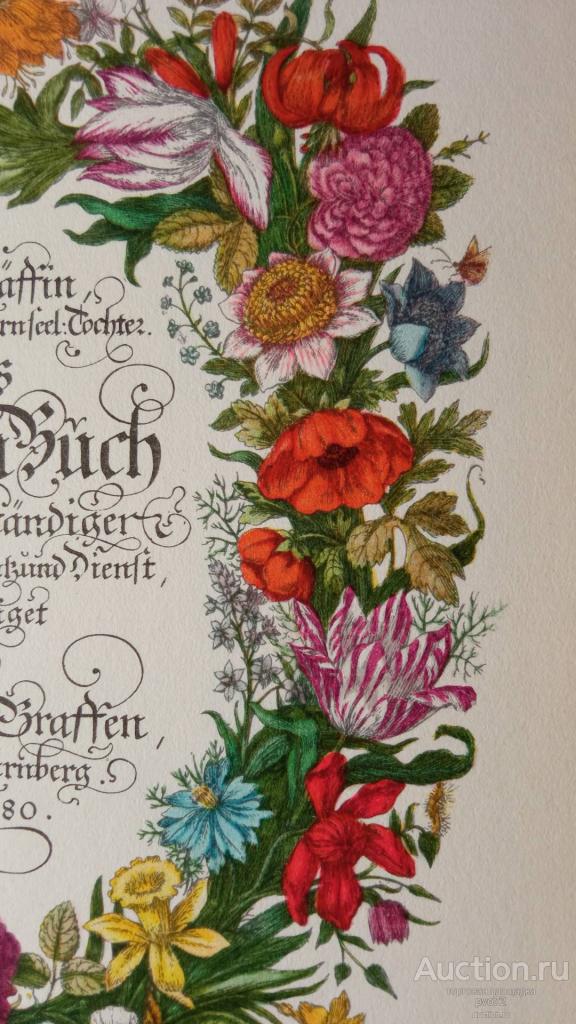 äffin,
rn seel: Tochter.
s
Buch
ändiger
und Dienst,
get
Graffen,
rnberg.
80.
Auction.ru
торговая площадка